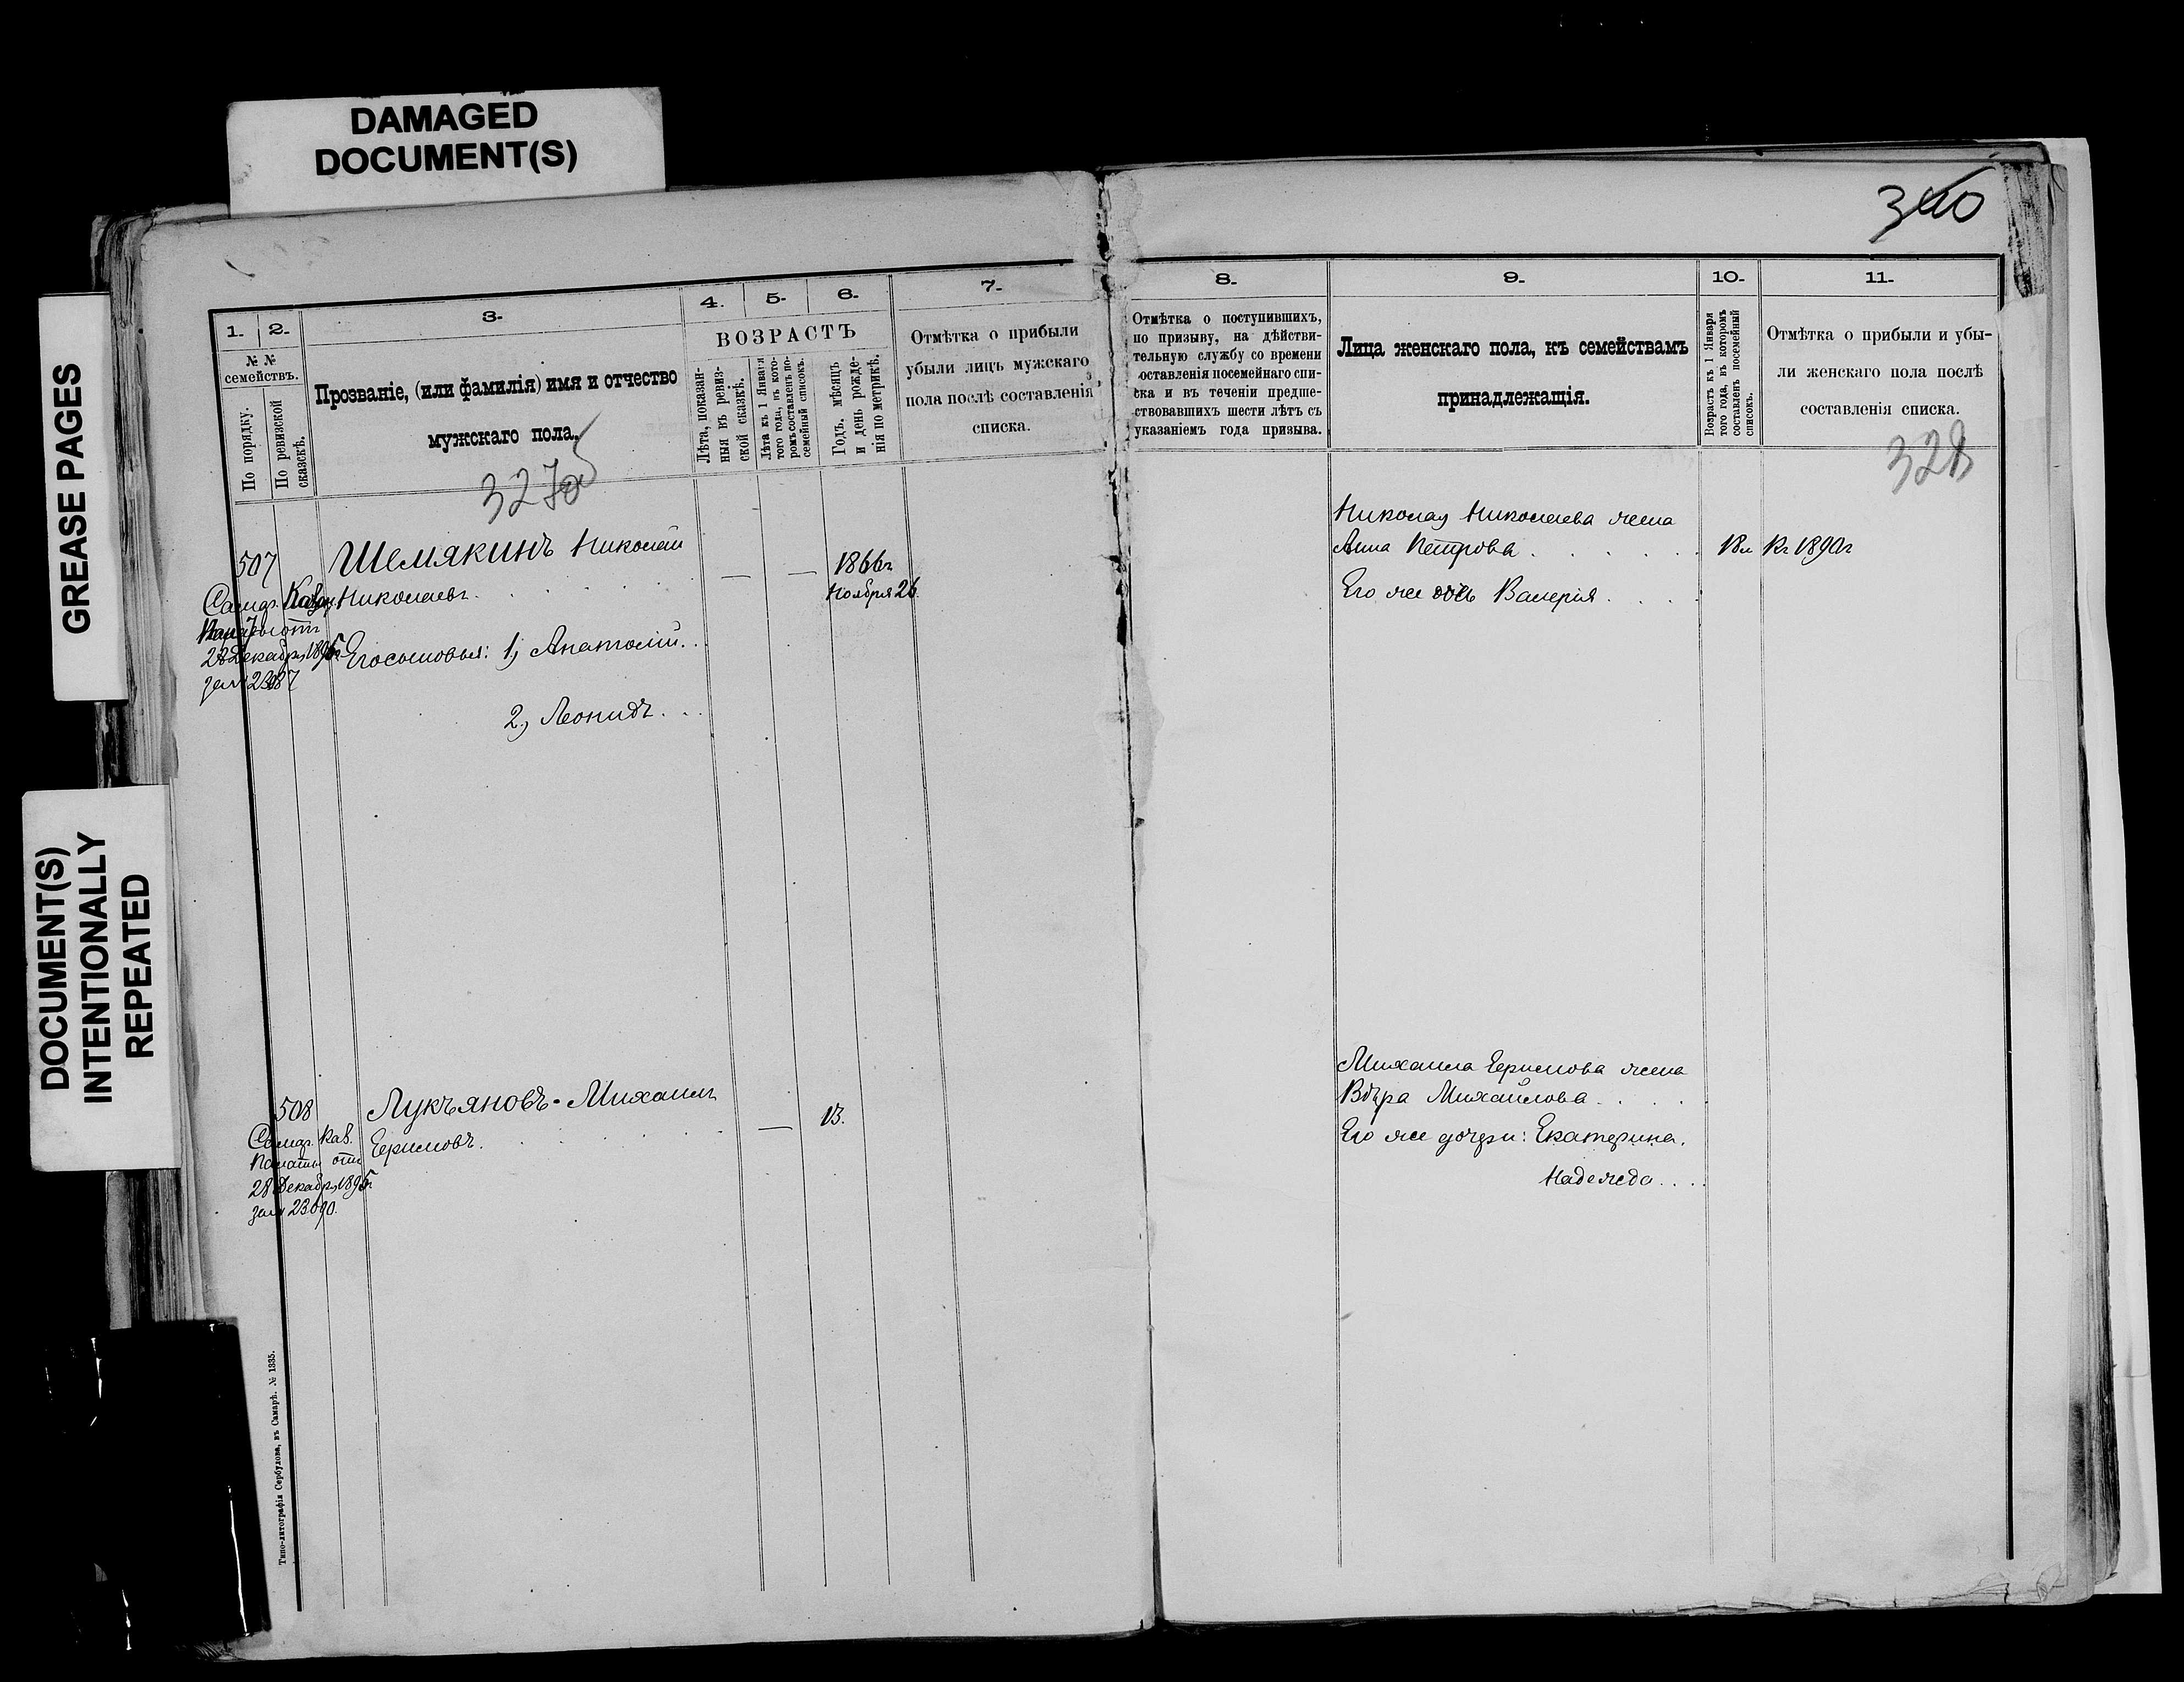 DAMAGED
DOCUMENT(S)
GREASE PAGES
DOCUMENT(S)
INTENTIONALLY
REPEATED
1.
2.
3.
4.
5.
6.
7.
№ №
семействъ.
По порядку.
По ревизской
сказкѣ.
Прозваніе, (или фамилія) имя и отчество
мужскаго пола.
ВОЗРАСТЪ
Лѣта, показан-
ныя въ ревиз-
ской сказкѣ.
Лѣта къ 1 Января
того года, въ кото-
ромъ составленъ по-
семейный списокъ.
Годъ, мѣсяцъ
и день рожде-
нія по метрикѣ.
Отмѣтка о прибыли
убыли лицъ мужскаго
пола послѣ составленія
списка.
327об
507
Шемякинъ Николай
Николаевъ
1866г
Ноября 26
28 Декабря 1895г
за № 23087
Его сыновья: 1, Анатолій
2, Леонидъ
508
Лукъяновъ Михаилъ
В.
Палаты отъ
28 Декабря 1895г
за № 23090.
Типо-литографія Сербулова, въ Самарѣ. № 1335.
340
8.
9.
10.
11.
Отмѣтка о поступившихъ,
по призыву, на дѣйстви-
тельную службу со времени
оставленія посемейнаго спи-
ска и въ теченіи предше-
ствовавшихъ шести лѣтъ съ
указаніемъ года призыва.
Лица женскаго пола, къ семействамъ
принадлежащія.
Возрастъ къ 1 Января
того года, въ которомъ
составленъ посемейный
списокъ.
Отмѣтка о прибыли и убы-
ли женскаго пола послѣ
составленія списка.
328
Николая Николаева жена
Анна Петрова
18л
Къ 1890г
Его же дочь Валерія
Михаила жена
Вѣра Михайлова
Его же дочери: Екатерина.
Надежда